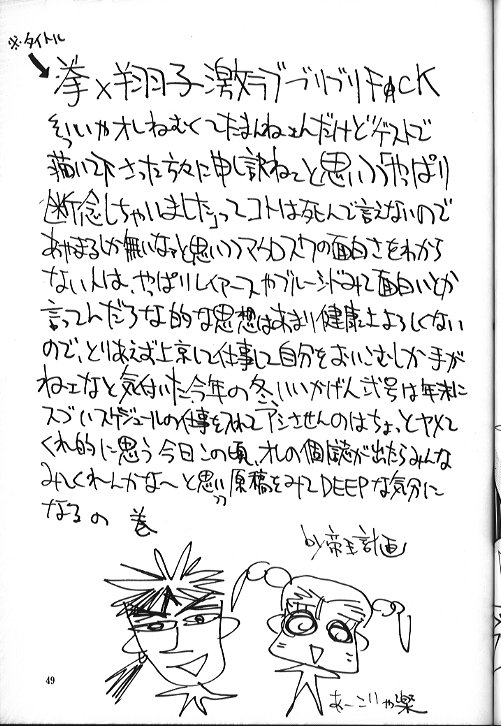 ※タイトル
拳×翔子 激ラブブリブリFACK
そういやオレねむくてたまんねェんだけどゲストで
描いて下さった方々に申し訳ねェと思いつつ「やっぱり
断念しちゃいました」ってコトは死んで言えないので
あやまるしか無いなァと思いつつマクロスの面白さをわから
ない人は、やっぱりレイアースやブルーシードみて面白いとか
言ってんだろな的な思想はあまり健康上よろしくない
ので、とりあえず上京して仕事して自分をおいこむしか手が
ねェなと気付いた今年の冬、いいかげん弐号は年末に
スゴいスケジュールの仕事を入れてアシさせんのはちょっとヤメて
くれ的に思う今日この頃、オレの個人誌が出たらみんな
みてくれーんかな〜と思いつつ原稿をみてDEEPな気分に
なるの巻
by帝王計画
あーこりゃ楽
49